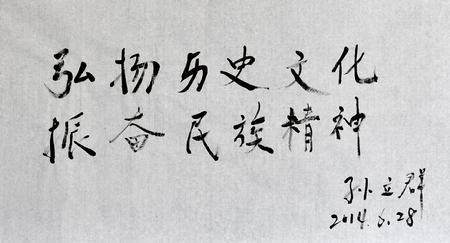 弘扬历史文化
振奋民族精神
孙立群
2014.6.28